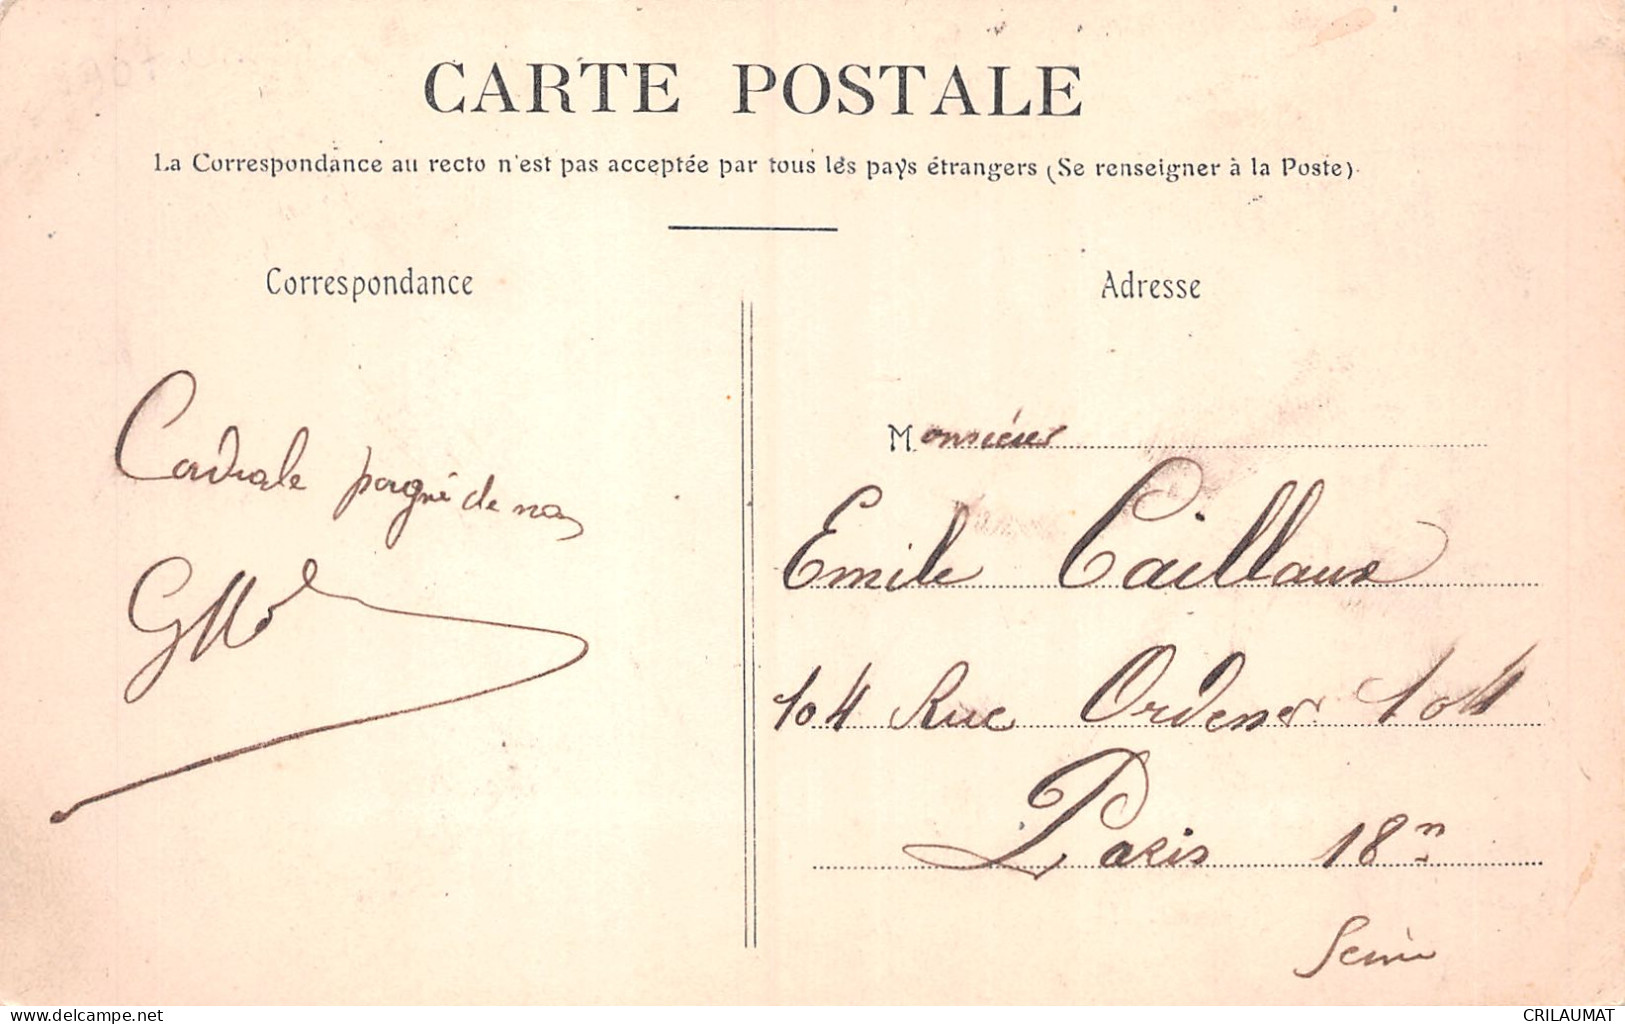 CARTE POSTALE
La Correspondance au recto n'est pas acceptée par tous les pays étrangers (Se renseigner à la Poste)
Correspondance
Cordiale pogné de
Adresse
Monsieur
Emile Caillaux
104 Rue Ordener 104
Paris 18
Seine
www.delcampe.net
CRILAUMAT